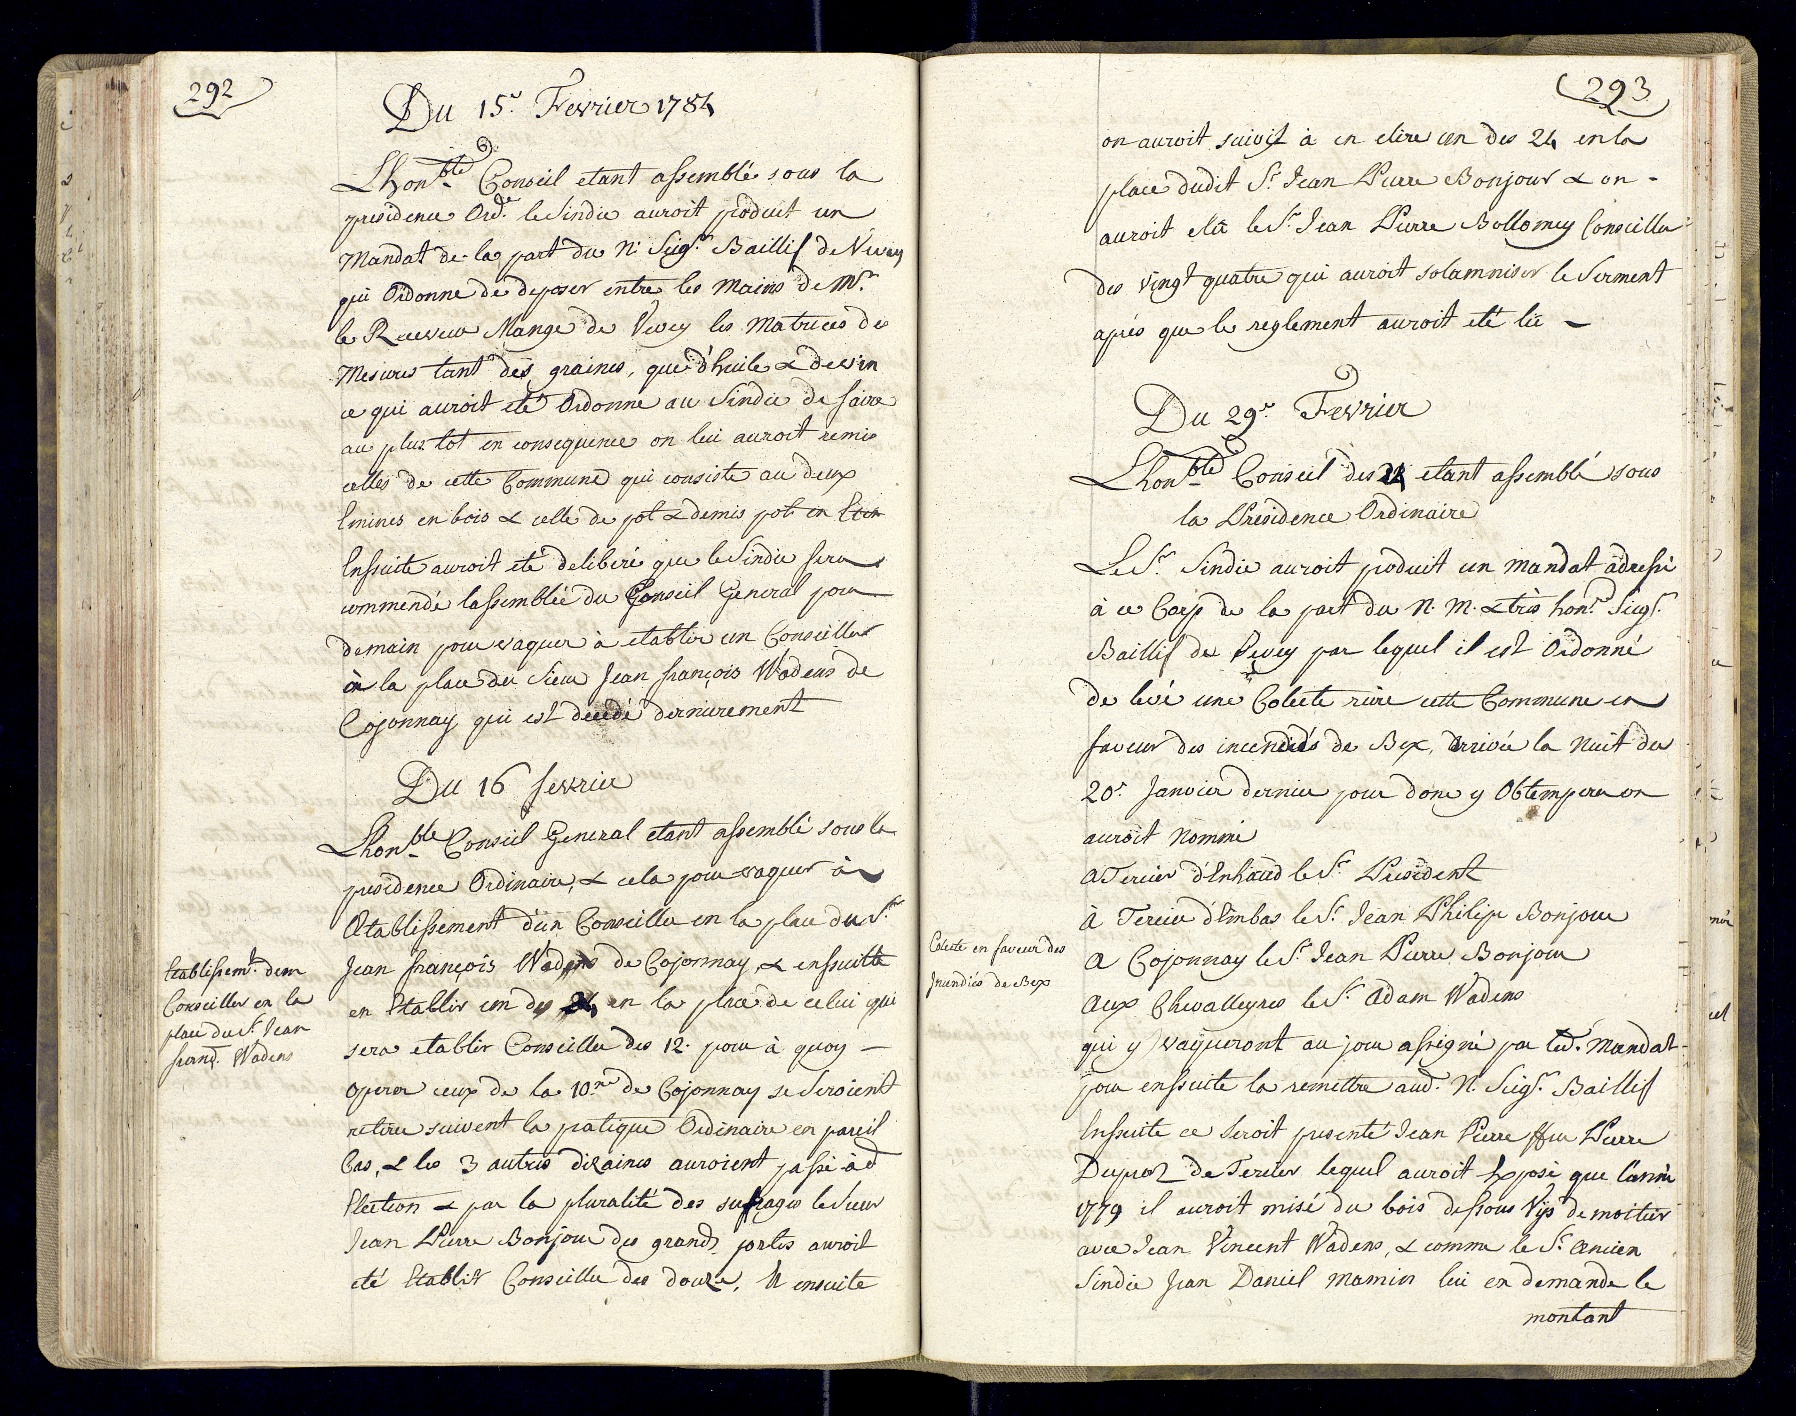 292
Du 15e. Fevrier 1784
Lhonble Conseil etant assemblé sous la
presidence Ordre. le Sindic auroit produit un
Mandat de la part du N. Seigr. Baillif de Vevey
qui Ordonne de deposer entre les mains de Mr.
le Receveur Mange de Vevey les Matrices des
Mesures tant des graines, que d'huile & de vin
ce qui auroit eté Ordonne au Sindic de faire
au plus tot en consequence on lui auroit remis
celles de cette Commune qui consiste au deux
Emines en bois & celle de pot & demis pot en Etin
Ensuite auroit eté deliberé que le Sindic sera
commendé lassemblée du Conseil General pour
demain pour vaquer à etablir un Conseiller
à la place du Sieur Jean françois Wadens de
Cojonnay qui est decedé dernierement
Du 16 fevrier
Lhonble Conseil General etant assemblé sous la
presidence Ordinaire, & cela pour vaquer à
Etablissement d'un Conseiller en la place du Sr.
Jean françois Wadens de Cojonnay & ensuitte
en Etablir un des 24 en la place de celui qui
sera etablir Conseiller des 12. pour à quoy —
operer ceux de la 10ne de Cojonnay se seroient
retiré suivent la patique Ordinaire en pareil
Cas, & les 3 autres dizaines auroient passé à d
Election & par la pluralité des suffrages le Sieur
Jean Pierre Bonjour des grands portes auroit
eté Etablir Conseiller des douze, & ensuite
Etablissemt. dun
Conseiller en la
place du Sr. Jean
franç. Wadens
293
on auroit suivit à en elire un des 24 en la
place dudit Sr. Jean Pierre Bonjour & on -
auroit elû le Sr. Jean Pierre Bollomey Conseiller
des vingt quatre qui auroit solamniser le Serment
après que le reglement auroit eté lû —
Du 29e. Fevrier
Lhonble Conseil des 24 etant assemblé sous
la Presidence Ordinaire
Le Sr. Sindic auroit produit un mandat adressé
à ce Corp de la part du N. M. & très honr. Seigr.
Baillif de Vevey par lequel il est Ordonné
de levé une Colecte rière cette Commune en
faveur des incendiés de Bex, arrivée la nuit du
20e. Janvier dernier pour donc y Obtemperer on
auroit nommé
A Tercier d'Enhaud le Sr. President
à Tercier d'Embas le Sr. Jean Philip Bonjour
A Cojonnay le Sr. Jean Pierre Bonjour
Aux Chevalleyres le Sr. Adam Wadens
qui y vaqueront au jour assigné par led. Mandat
pour ensuite la remettre aud. N. Seigr. Baillif
Ensuite ce seroit presenté Jean Pierre ffeu Pierre
Dupraz de Tercier lequel auroit Exposé que l'année
1779 il auroit misé du bois dessous Vijs de moitier
avec Jean Vincent Wadens, & comme le Sr. Ancien
Sindic Jean Daniel Mamin lui en demande le
montant
Colecte en faveur des
Incendiés de Bex